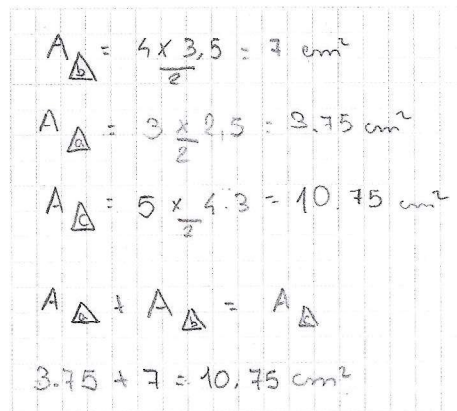 A △b = 4 x 3,5 / 2 = 7 cm²
A △a = 3 x 2,5 / 2 = 3.75 cm²
A △c = 5 x 4.3 / 2 = 10.75 cm²
A △a + A △b = A △c
3.75 + 7 = 10.75 cm²